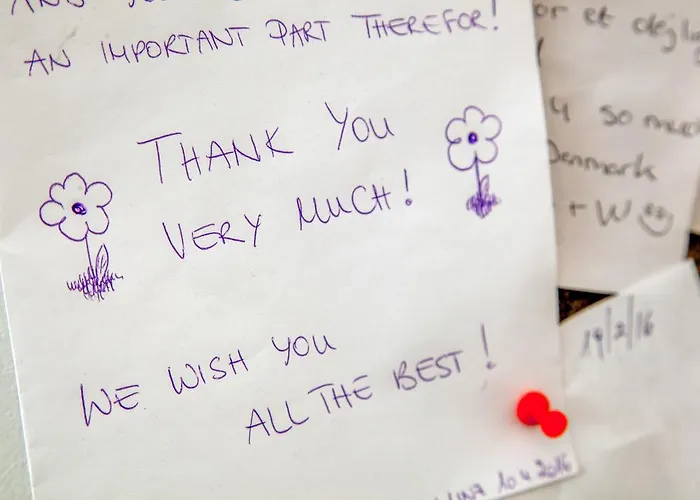 AN IMPORTANT PART THEREFOR!
THANK YOU
VERY MUCH!
WE WISH YOU
ALL THE BEST!
10.4.2016
or et dejl
so mu
Denmark
+ W
19/2/16